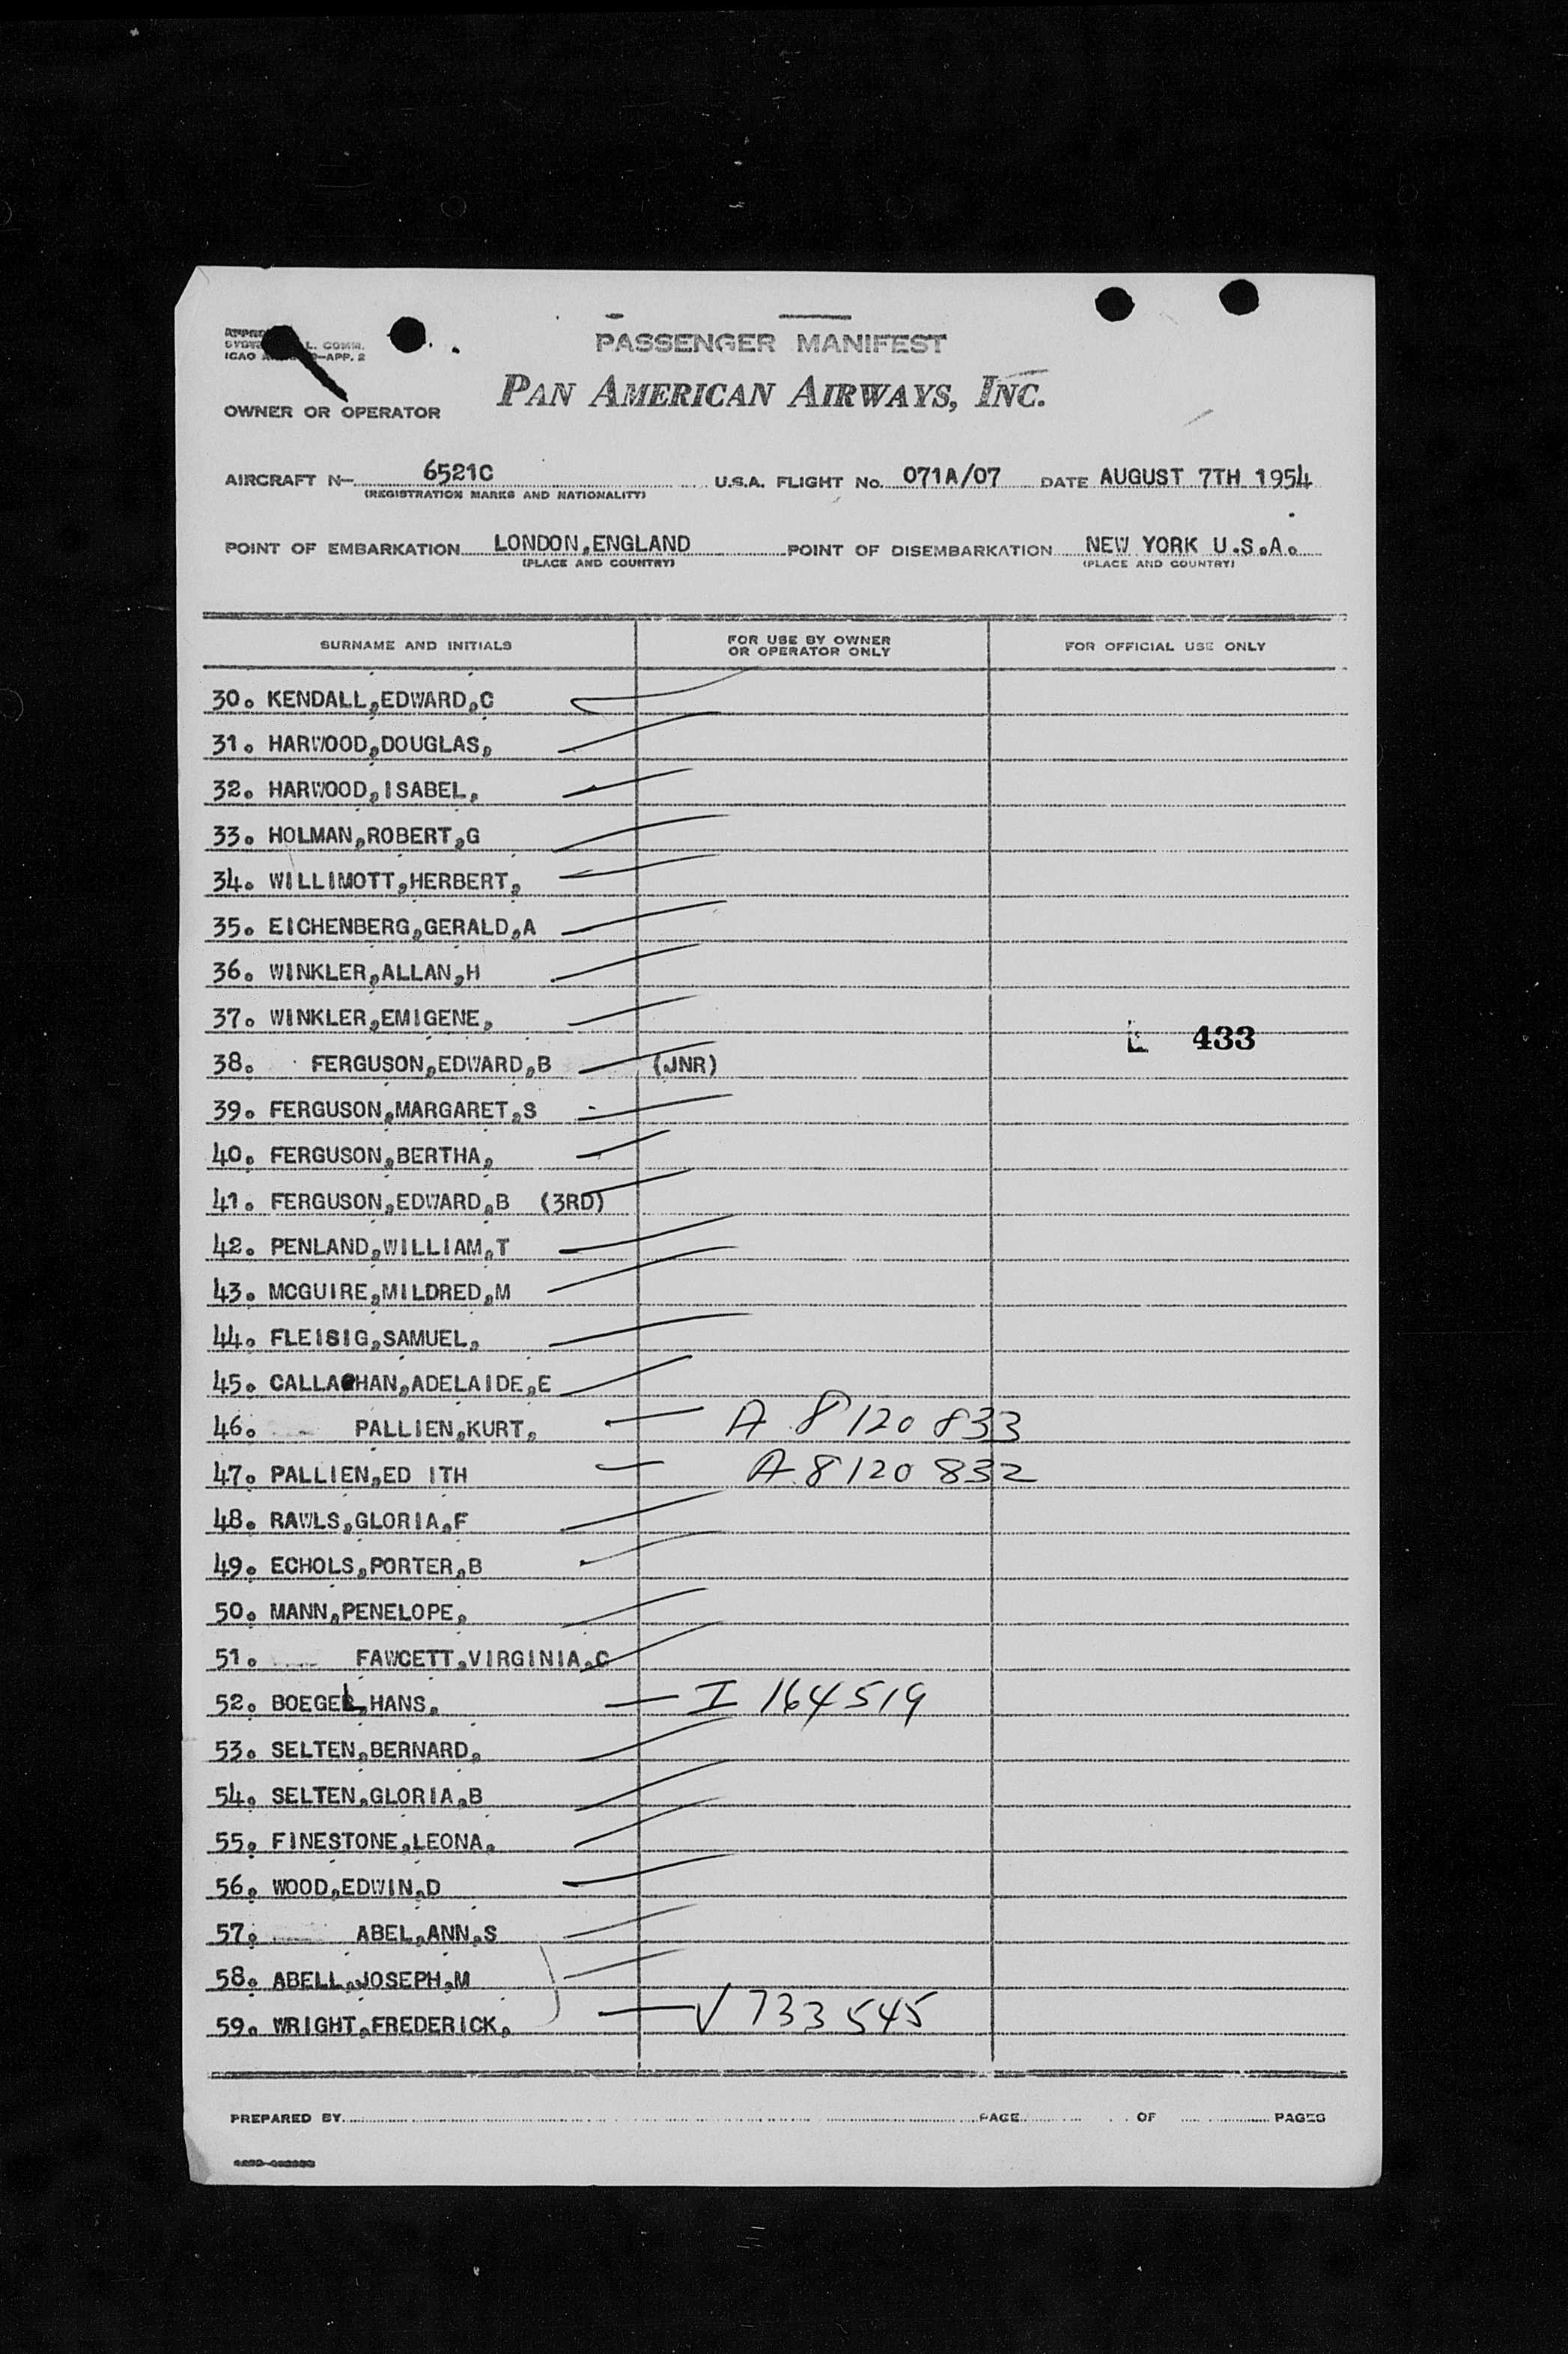 L. COMM.
ICAO -APP. 2
PASSENGER MANIFEST
PAN AMERICAN AIRWAYS, INC.
OWNER OR OPERATOR
AIRCRAFT N- 6521C U.S.A. FLIGHT No. 071A/07 DATE AUGUST 7TH 1954
(REGISTRATION MARKS AND NATIONALITY)
POINT OF EMBARKATION LONDON,ENGLAND POINT OF DISEMBARKATION NEW YORK U.S.A.
(PLACE AND COUNTRY) (PLACE AND COUNTRY)
SURNAME AND INITIALS FOR USE BY OWNER OR OPERATOR ONLY FOR OFFICIAL USE ONLY
30. KENDALL,EDWARD,C
31. HARWOOD,DOUGLAS,
32. HARWOOD,ISABEL,
33. HOLMAN,ROBERT,G
34. WILLIMOTT,HERBERT,
35. EICHENBERG,GERALD,A
36. WINKLER,ALLAN,H
37. WINKLER,EMIGENE,
L 433
38. FERGUSON,EDWARD,B (JNR)
39. FERGUSON,MARGARET,S
40. FERGUSON,BERTHA,
41. FERGUSON,EDWARD,B (3RD)
42. PENLAND,WILLIAM,T
43. MCGUIRE,MILDRED,M
44. FLEISIG,SAMUEL,
45. CALLAGHAN,ADELAIDE,E
46. PALLIEN,KURT, A 8120 833
47. PALLIEN,ED ITH A 8120 832
48. RAWLS,GLORIA,F
49. ECHOLS,PORTER,B
50. MANN,PENELOPE,
51. FAWCETT,VIRGINIA,C
52. BOEGEL,HANS, I 164519
53. SELTEN,BERNARD,
54. SELTEN,GLORIA,B
55. FINESTONE,LEONA,
56. WOOD,EDWIN,D
57. ABEL,ANN,S
58. ABELL,JOSEPH,M
59. WRIGHT,FREDERICK, V 733 545
PREPARED BY PAGE OF PAGES